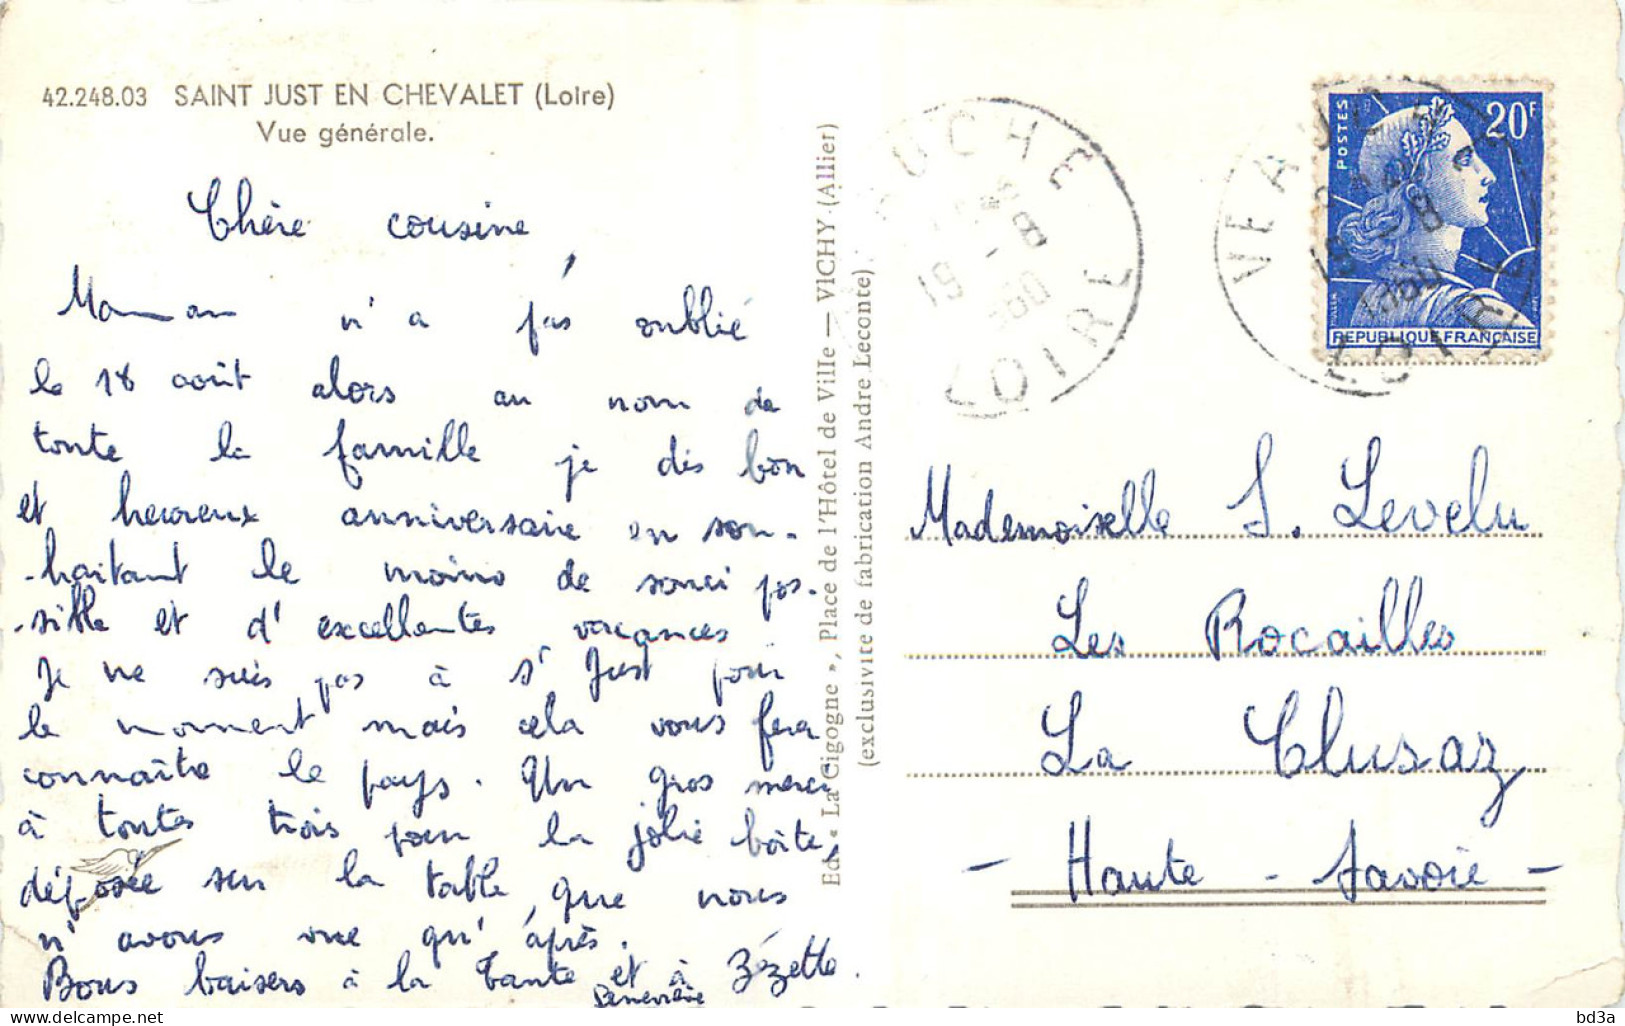 42.248.03 SAINT JUST EN CHEVALET (Loire)
Vue générale.
Chère cousine,
Maman n'a pas oublié
le 18 août alors au nom de
toute la famille je dis bon
et heureux anniversaire en sou-
-haitant le moins de souci pos-
-sible et d'excellentes vacances
Je ne suis pas à St Just pour
le moment mais cela vous fera
connaître le pays. Un gros merci
à toutes trois pour la jolie boîte,
déposée sur la table, que nous
n'avons vue qu'après.
Bons baisers à la Tante et à Zézette.
Geneviève
Ed. « La Cigogne », Place de l'Hôtel de Ville — VICHY (Allier)
(exclusivité de fabrication Andre Leconte)
AUCHE
19 -8
1960
LOIRE
VEAUCHE
19 -8
1960
LOIRE
POSTES
20F
MULLER
REPUBLIQUE FRANÇAISE
Mademoiselle S. Levelu
Les Rocailles
La Clusaz
- Haute - Savoie -
delcampe.net
bd3a